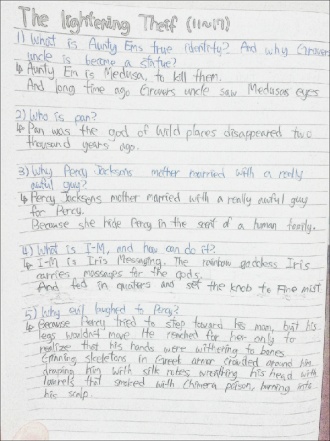 The lightening Theif (11~17)
1) What is Aunty Ems true identity? And why Grovers
uncle is become a statue?
↳ Aunty Em is Medusa, to kill them.
And long time ago Grovers uncle saw Medusas eyes
2) Who is pan?
↳ Pan was the god of Wild places disappeared two
thousand years ago.
3) Why Percy Jacksons mother married with a really
awful guy?
↳ Percy Jacksons mother married with a really awful guy
for Percy.
Because she hide Percy in the scent of a human family.
4) What is I-M, and how can do it?
↳ I-M is Iris Messaging. The rainbow goddess Iris
carries messages for the gods.
And fed in quaters and set the knob to FINE MIST
5) Why evil laughed to Percy?
↳ Because Percy tried to step toward his mom, but his
legs wouldn't move. He reached for her only to
realize that his hands were withering to bones
Grinning skeletons in Greek armor crowded around him
draping him with silk robes, wreathing his head with
laurels that smoked with Chimera poison, burning into
his scalp.